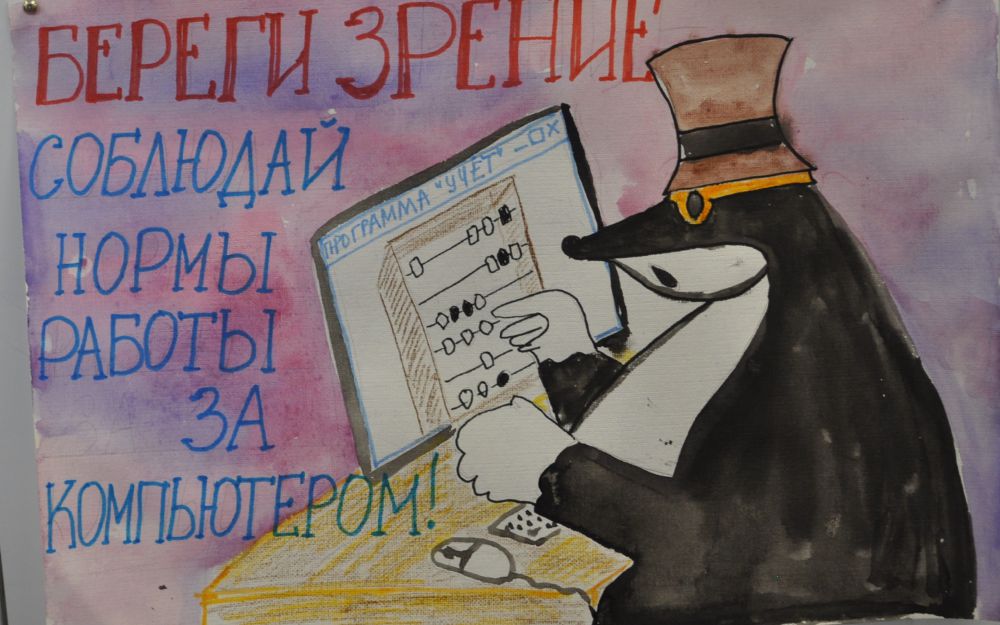 БЕРЕГИ ЗРЕНИЕ
СОБЛЮДАЙ
НОРМЫ
РАБОТЫ
ЗА
КОМПЬЮТЕРОМ!
ПРОГРАММА "УЧЕТ"